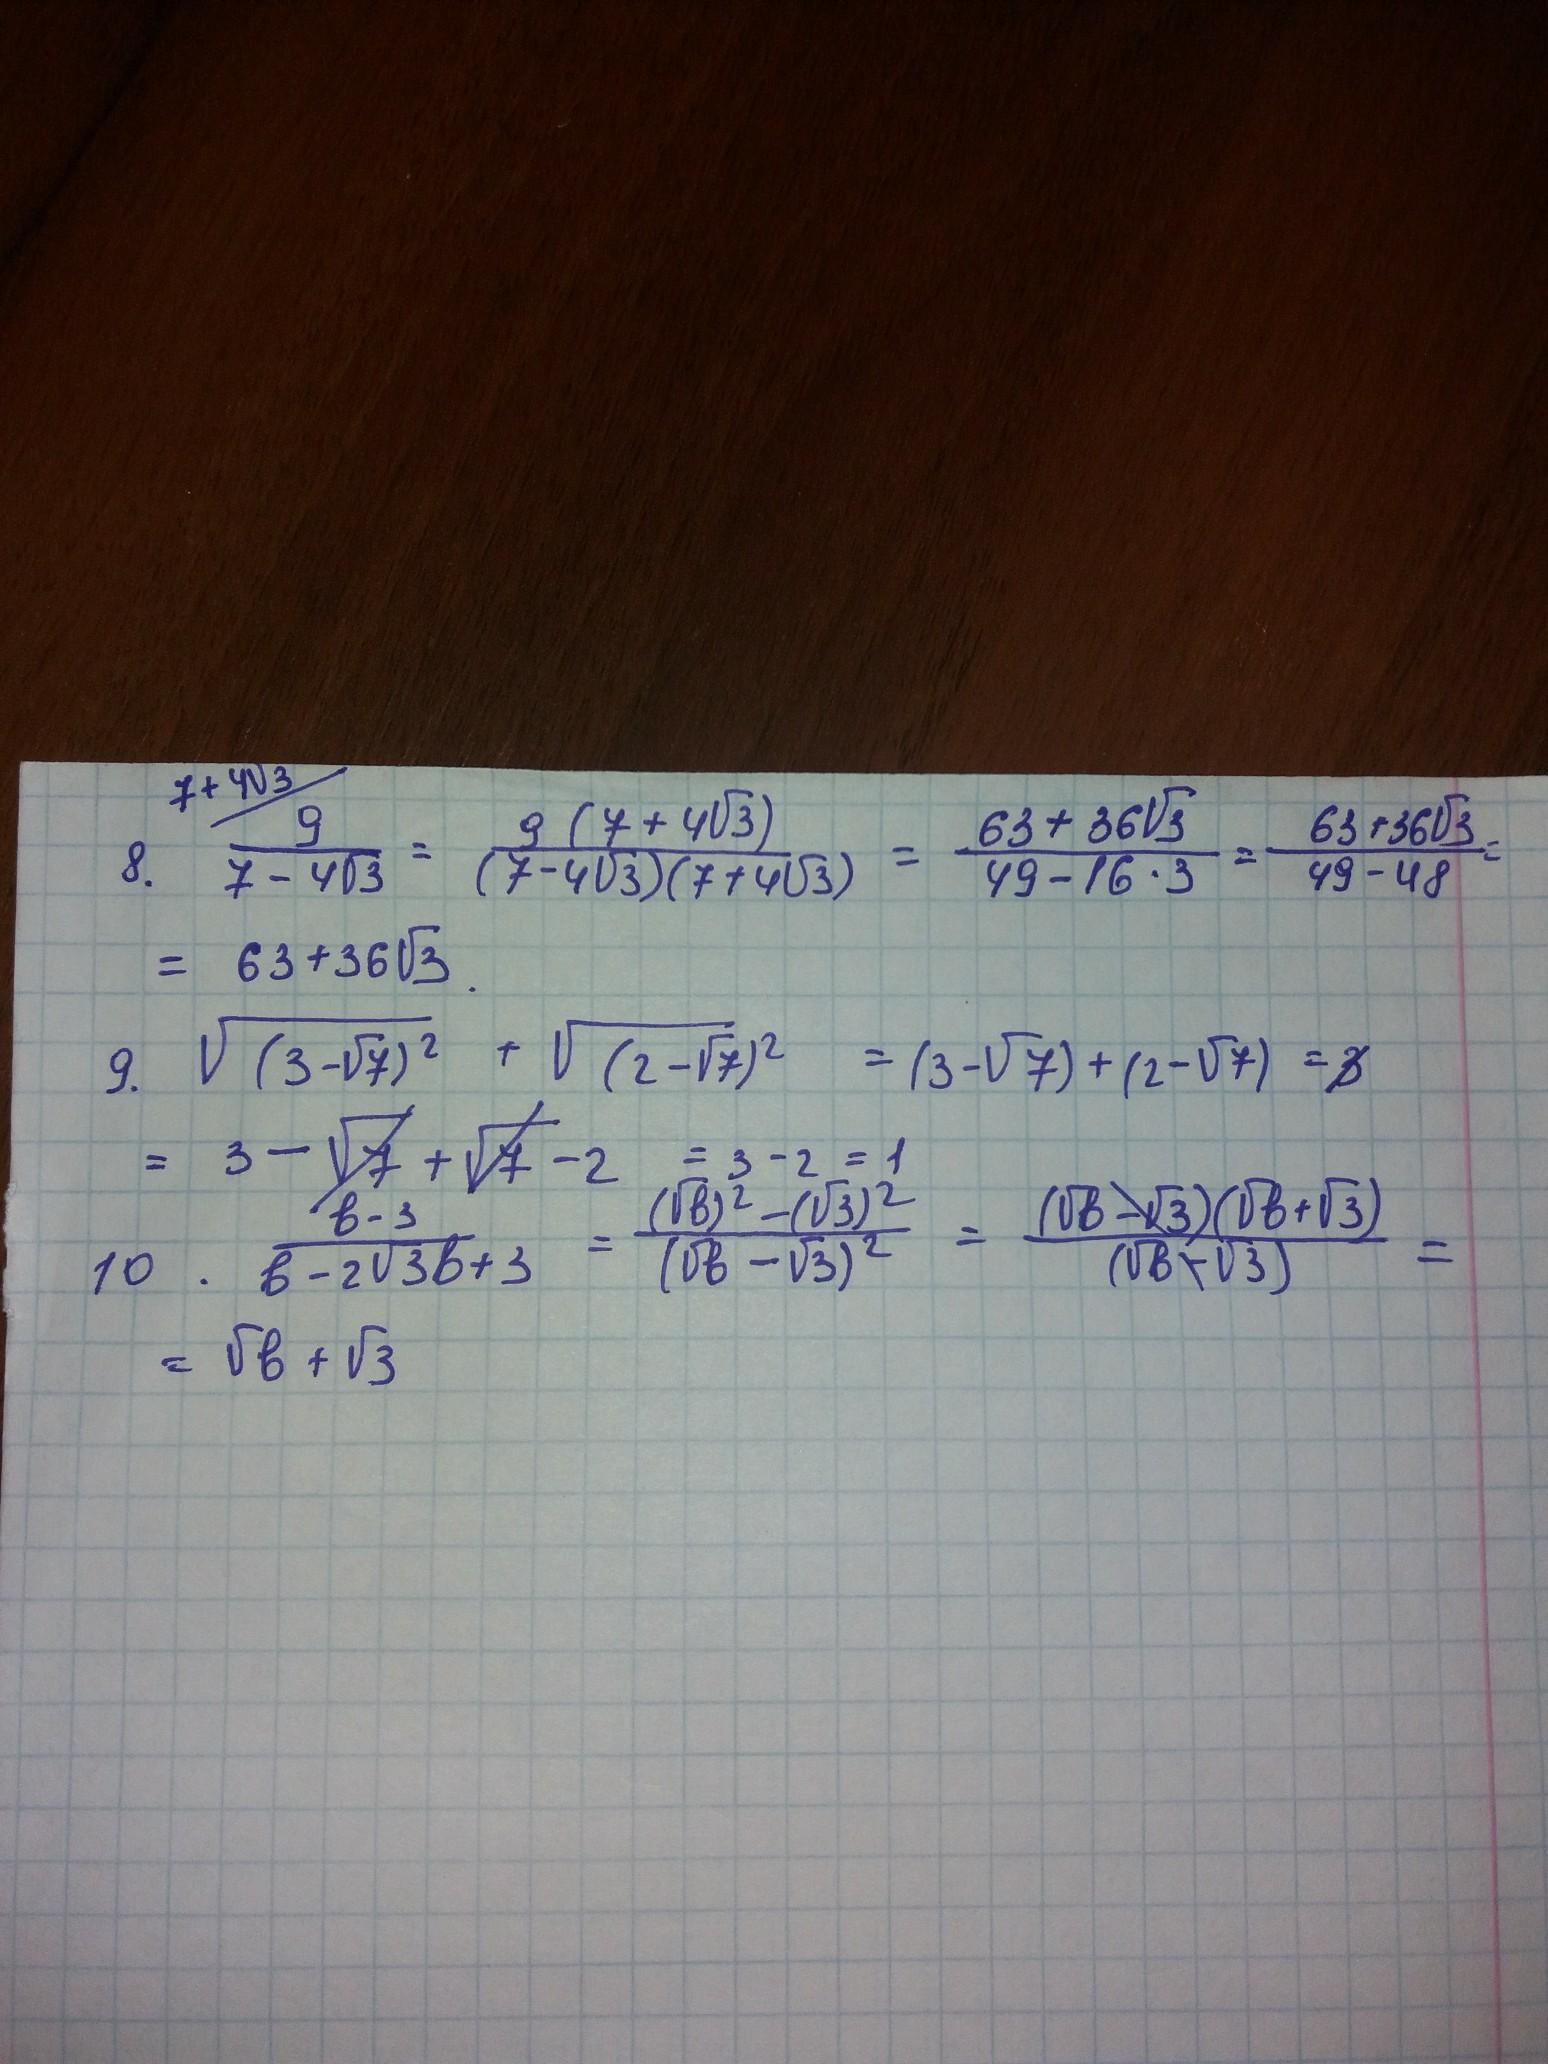 7+4√3
8. 9/(7-4√3) = 9(7+4√3)/((7-4√3)(7+4√3)) = (63+36√3)/(49-16·3) = (63+36√3)/(49-48) =
= 63+36√3.
9. √(3-√7)² + √(2-√7)² = (3-√7)+(2-√7) =
= 3-√7+√7-2 = 3-2 = 1
10. (в-3)/(в-2√3в+3) = ((√в)²-(√3)²)/(√в-√3)² = (√в-√3)(√в+√3)/(√в-√3) =
= √в+√3